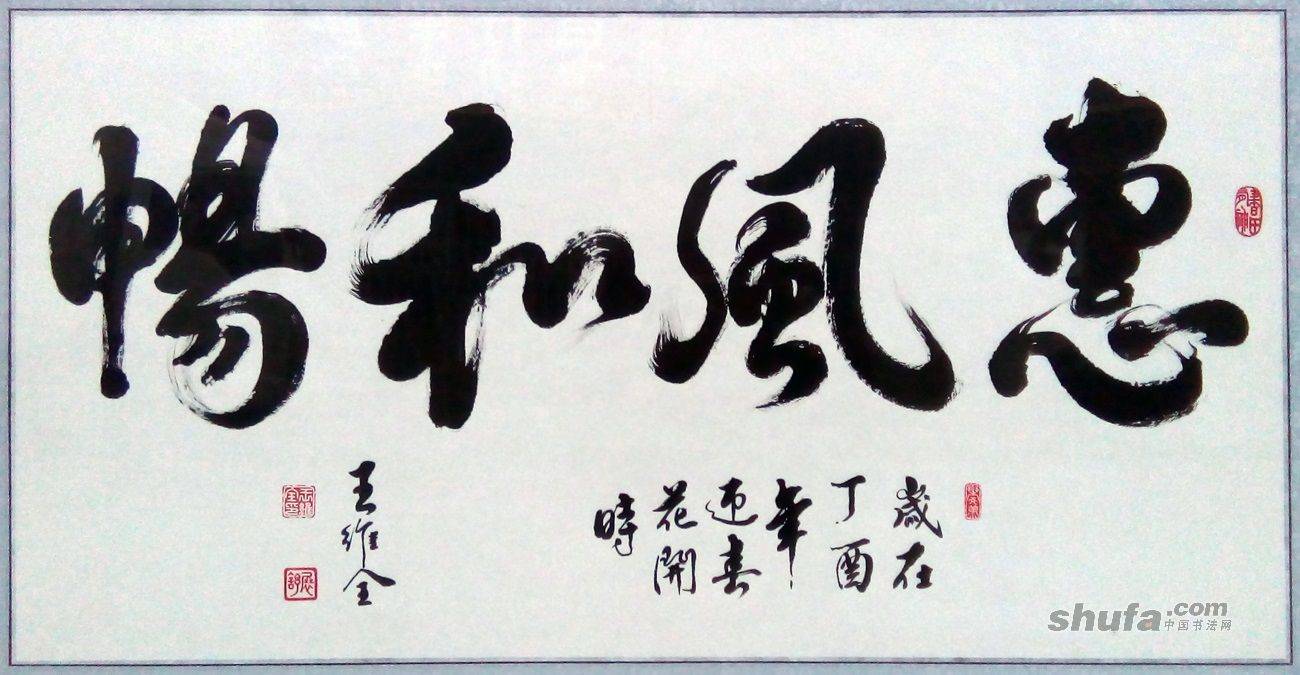 惠風和暢
歲在
丁酉
年
迎春
花開
時
王維全
shufa.com
中国书法网